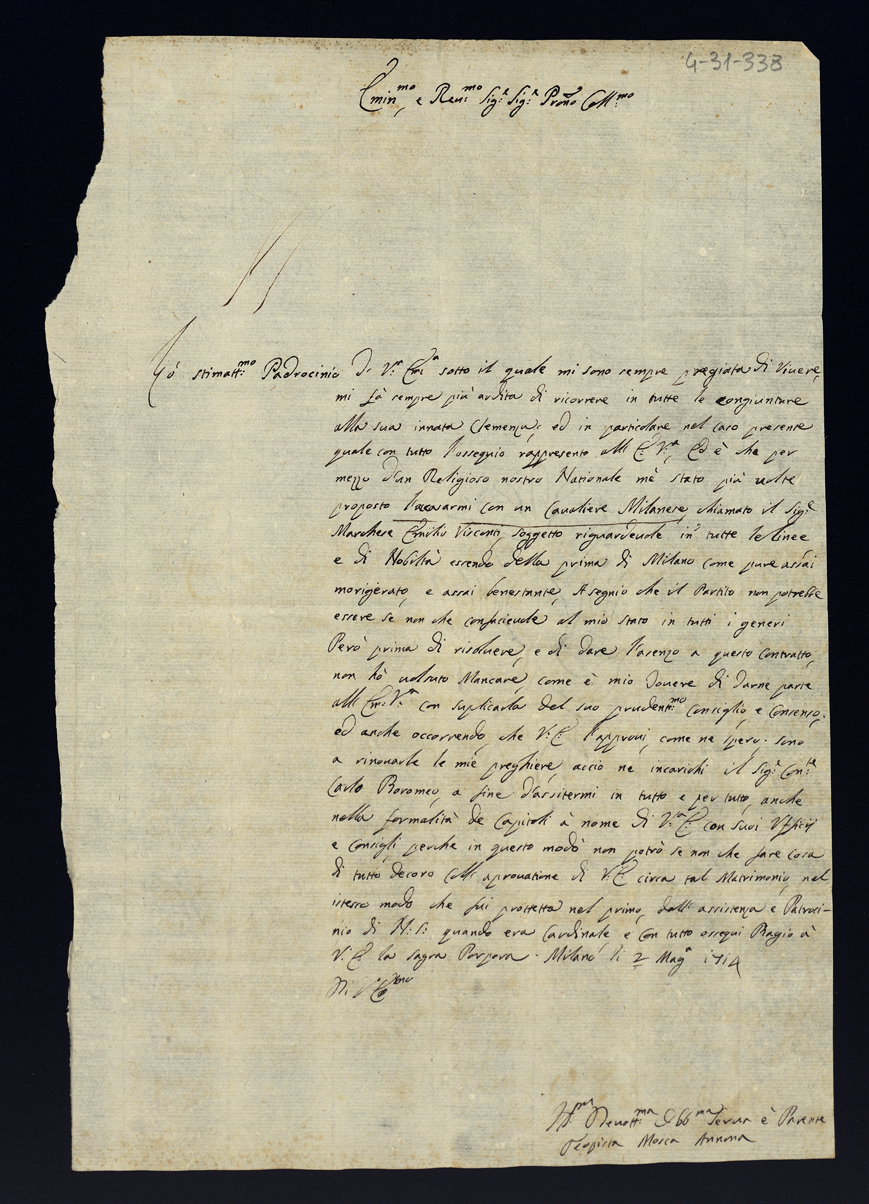 4-31-338
Emin.mo e Reu.mo Sig.r Sig.r Pron̄o Coll.mo
Lo stimatt.mo Padrocinio di V.ra Em.za sotto il quale mi sono sempre pregiata di Viuere,
mi fà sempre più ardita di ricorrere in tutte le congiunture
alla sua innata Clemenza, ed in particolare nel caso presente
quale con tutto l'ossequio rappresento all' E: V.ra, Ed è che per
mezzo d'un Religioso nostro Nationale m'è stato più uolte
proposto l'acasarmi con un Caualiere Milanese chiamato il Sig.r
Marchese Emilio Visconti, soggetto riguardeuole in tutte le linee
e di Nobiltà essendo della prima di Milano come pure assai
morigerato, e assai benestante, A segnio che il Partito non potrebbe
essere se non che confaceuole al mio stato in tutti i generi
Però prima di risoluere, e di dare l'asenzo a questo contratto,
non hò uolsuto Mancare, come è mio douere di darne parte
all' Em: V.ra con suplicarla del suo prudent.mo Consiglio, e Consenso,
ed anche occorrendo, che V: E: l'approui, come ne spero; sono
a rinouarle le mie preghiere, acciò ne incarichi il Sig.r Con.te
Carlo Boromeo, a fine d'assitermi in tutto e per tutto, anche
nella formalità de Capitoli à nome di V.ra E: con suoi Vfficij
e Consigli perche in questo modo non potrò se non che fare cosa
di tutto decoro coll' aprouatione di V: E: circa tal Matrimonio, nel
istesso modo che fui protetta nel primo, dall' assistenza e Patroci-
nio di N: S: quando era Cardinale e con tutto ossequi Bagio à
V: E: la sagra Porpora. Milano li 2 Mag.o 1714
Di V. E.
H.ma Deuott.ma Obb.ma Serua è Parente
Teopista Mosca Annona